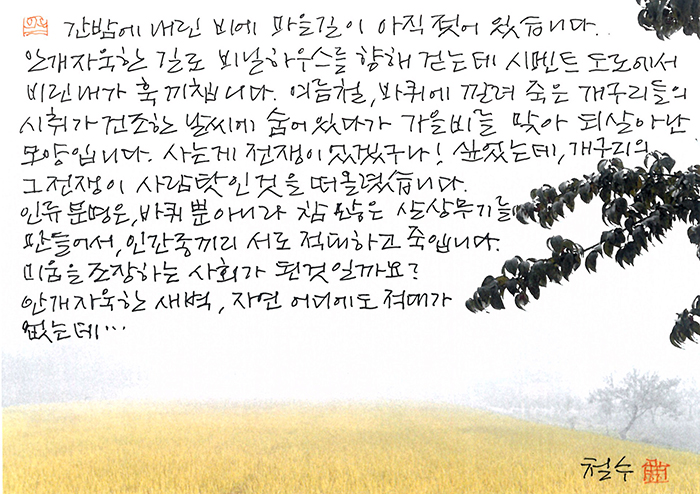 간밤에 내린 비에 마을길이 아직 젖어 있습니다.
안개자욱한 길로 비닐하우스를 향해 걷는데 시멘트 도로에서
비린내가 훅 끼칩니다. 여름철, 바퀴에 깔려 죽은 개구리들의
시취가 건조한 날씨에 숨어있다가 가을비를 맞아 되살아난
모양입니다. 사는게 전쟁이었겠구나! 싶었는데, 개구리의
그 전쟁이 사람탓인 것을 떠올렸습니다.
인류문명은, 바퀴뿐아니라 참 많은 살상무기를
만들어서, 인간종끼리 서로 적대하고 죽입니다.
미움을 조장하는 사회가 된것일까요?
안개자욱한 새벽, 자연 어디에도 적대가
없는데···
철수